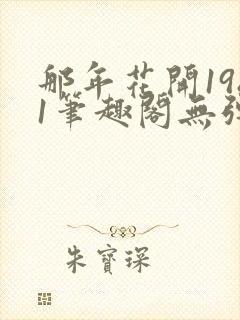 那年花開19
1筆趣閣無
朱寶琛